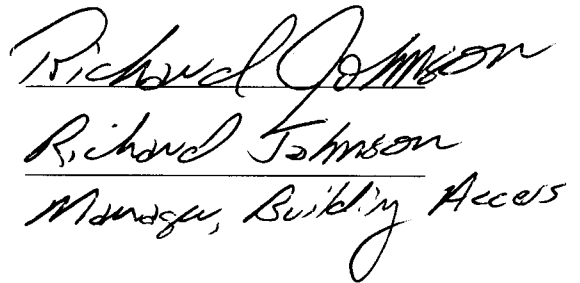 Richard Johnson
Richard Johnson
Manager, Building Access